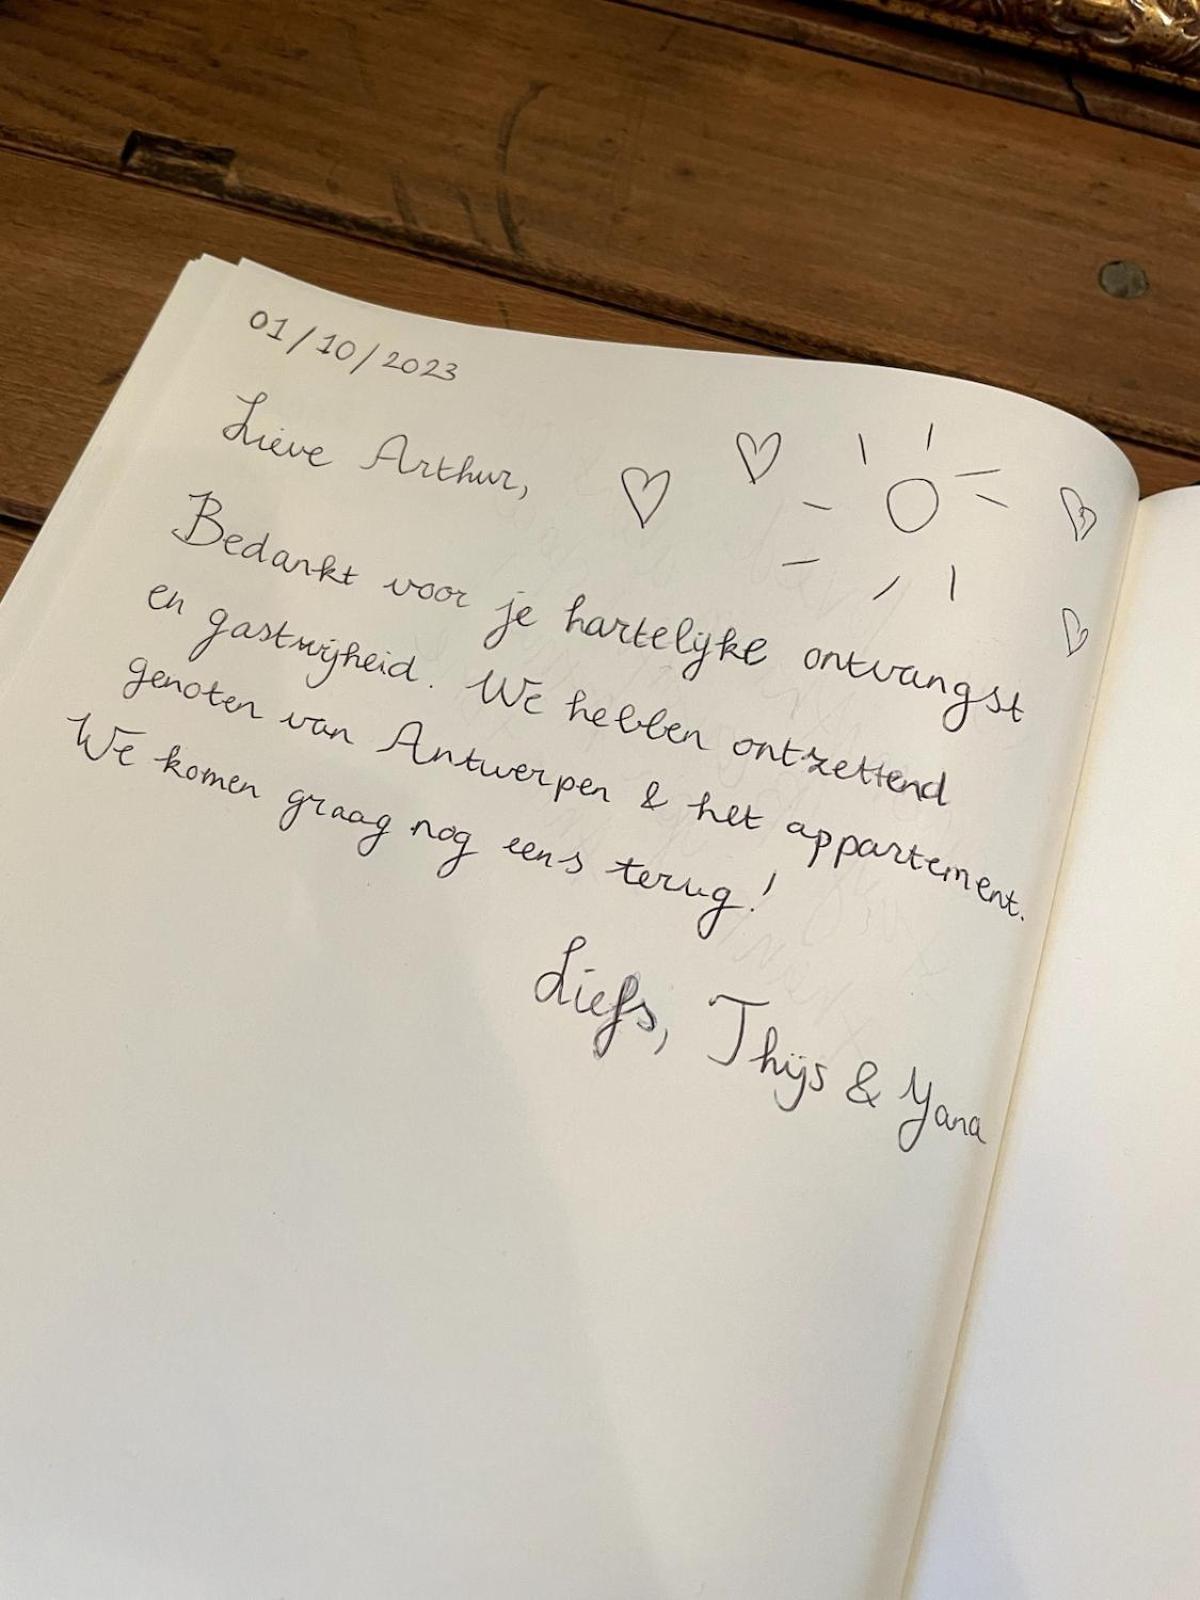 01/10/2023
Lieve Arthur,
Bedankt voor je hartelijke ontvangst
en gastvrijheid. We hebben ontzettend
genoten van Antwerpen & het appartement.
We komen graag nog eens terug!
Liefs, Thijs & Yana